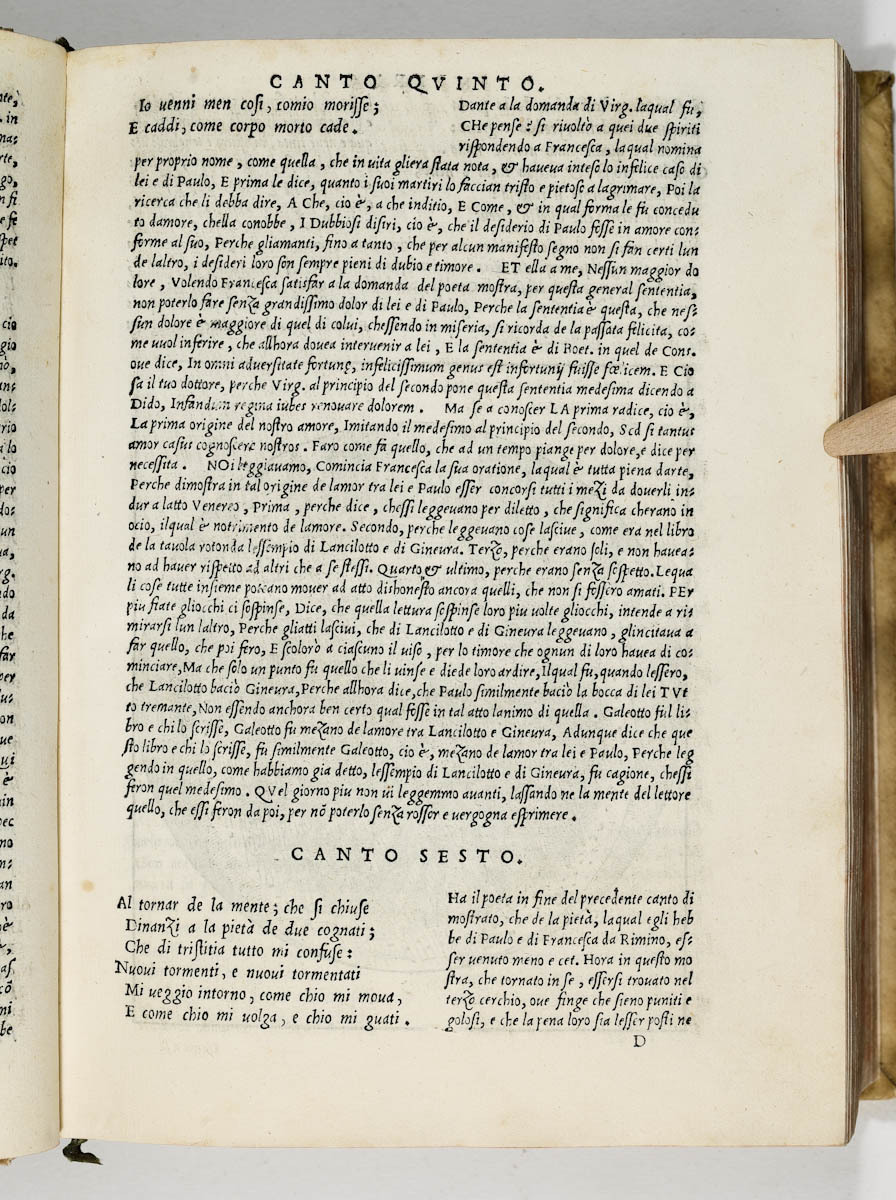 CANTO QVINTO.
Io uenni men cosi, comio morisse;
E caddi, come corpo morto cade.
Dante a la domanda di Virg. laqual fu,
CHe pense: si riuoltò a quei due spiriti
rispondendo a Francesca, laqual nomina
per proprio nome, come quella, che in uita gliera stata nota, & haueua inteso lo infelice caso di
lei e di Paulo, E prima le dice, quanto i suoi martiri lo faccian tristo e pietoso a lagrimare, Poi la
ricerca che li debba dire, A Che, cio è, a che inditio, E Come, & in qual forma le fu concedu
to damore, chella conobbe, I Dubbiosi disiri, cio è, che il desiderio di Paulo fosse in amore con-
forme al suo, Perche gliamanti, fino a tanto, che per alcun manifesto segno non si fan certi lun
de laltro, i desideri loro son sempre pieni di dubio e timore. ET ella a me, Nessun maggior do
lore, Volendo Francesca satisfar a la domanda del poeta mostra, per questa general sententia,
non poterlo fare senza grandissimo dolor di lei e di Paulo, Perche la sententia è questa, che nes-
sun dolore è maggiore di quel di colui, chessendo in miseria, si ricorda de la passata felicita, co-
me uuol inferire, che allhora douea interuenir a lei, E la sententia è di Boet. in quel de Cons.
oue dice, In omni aduersitate fortunę, infelicissimum genus est infortunij fuisse fœlicem. E Cio
sa il tuo dottore, perche Virg. al principio del secondo pone questa sententia medesima dicendo a
Dido, Infandum regina iubes renouare dolorem. Ma se a conoscer LA prima radice, cio è,
La prima origine del nostro amore, Imitando il medesimo al principio del secondo, Sed si tantus
amor casus cognoscere nostros. Faro come fà quello, che ad un tempo piange per dolore, e dice per
necessita. NOi leggiauamo, Comincia Francesca la sua oratione, laqual è tutta piena darte,
Perche dimostra in tal origine de lamor tra lei e Paulo esser concorsi tutti i mezi da douerli in-
dur a latto Venereo, Prima, perche dice, chessi leggeuano per diletto, che significa cherano in
ocio, ilqual è notrimento de lamore. Secondo, perche leggeuano cose lasciue, come era nel libro
de la tauola rotonda lessempio di Lancilotto e di Gineura. Terzo, perche erano soli, e non hauea-
no ad hauer rispetto ad altri che a se stessi. Quarto & ultimo, perche erano senza sospetto. Lequa
li cose tutte insieme poteano mouer ad atto dishonesto ancora quelli, che non si fossero amati. PEr
piu fiate gliocchi ci sospinse, Dice, che quella lettura sospinse loro piu uolte gliocchi, intende a ri-
mirarsi lun laltro, Perche gliatti lasciui, che di Lancilotto e di Gineura leggeuano, glincitaua a
far quello, che poi fero, E scolorò a ciascuno il uiso, per lo timore che ognun di loro hauea di co-
minciare, Ma che solo un punto fu quello che li uinse e diede loro ardire, Ilqual fu, quando lessero,
che Lancilotto baciò Gineura, Perche allhora dice, che Paulo similmente baciò la bocca di lei TVt
to tremante, Non essendo anchora ben certo qual fosse in tal atto lanimo di quella. Galeotto fu'l li-
bro e chi lo scrisse, Galeotto fu mezano de lamore tra Lancilotto e Gineura, Adunque dice che que
sto libro e chi lo scrisse, fu similmente Galeotto, cio è, mezano de lamor tra lei e Paulo, Perche leg
gendo in quello, come habbiamo gia detto, lessempio di Lancilotto e di Gineura, fu cagione, chessi
feron quel medesimo. QVel giorno piu non ui leggemmo auanti, lassando ne la mente del lettore
quello, che essi feron da poi, per nõ poterlo senza rosser e uergogna esprimere.
CANTO SESTO.
Al tornar de la mente; che si chiuse
Dinanzi a la pietà de due cognati;
Che di tristitia tutto mi confuse:
Nuoui tormenti, e nuoui tormentati
Mi ueggio intorno, come chio mi moua,
E come chio mi uolga, e chio mi guati.
Ha il poeta in fine del precedente canto di
mostrato, che de la pietà, laqual egli heb
be di Paulo e di Francesca da Rimino, es-
ser uenuto meno e cet. Hora in questo mo
stra, che tornato in se, essersi trouato nel
terzo cerchio, oue finge che sieno puniti e
golosi, e che la pena loro sia lesser posti ne
D